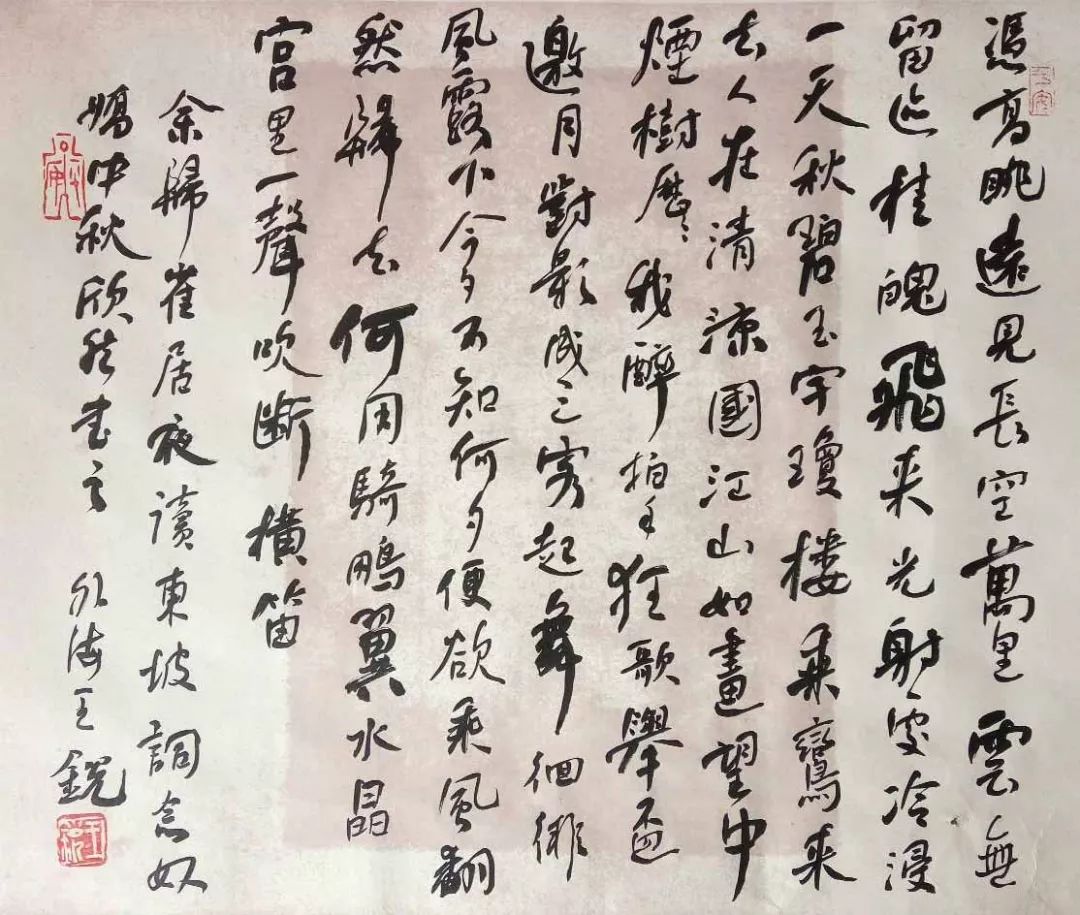 憑高眺遠見長空萬里雲無
留迹桂魄飛来光射處冷浸
一天秋碧玉宇瓊楼乘鸞来
去人在清涼國江山如畫望中
煙樹歷歷我醉拍手狂歌舉盃
邀月對影成三客起舞徊徘
風露下今夕不知何夕便欲乘風翻
然歸去何用騎鵬翼水晶
宮里一聲吹断横笛
余歸崔居夜讀東坡詞念奴
嬌中秋欣然書之 外海王鋭